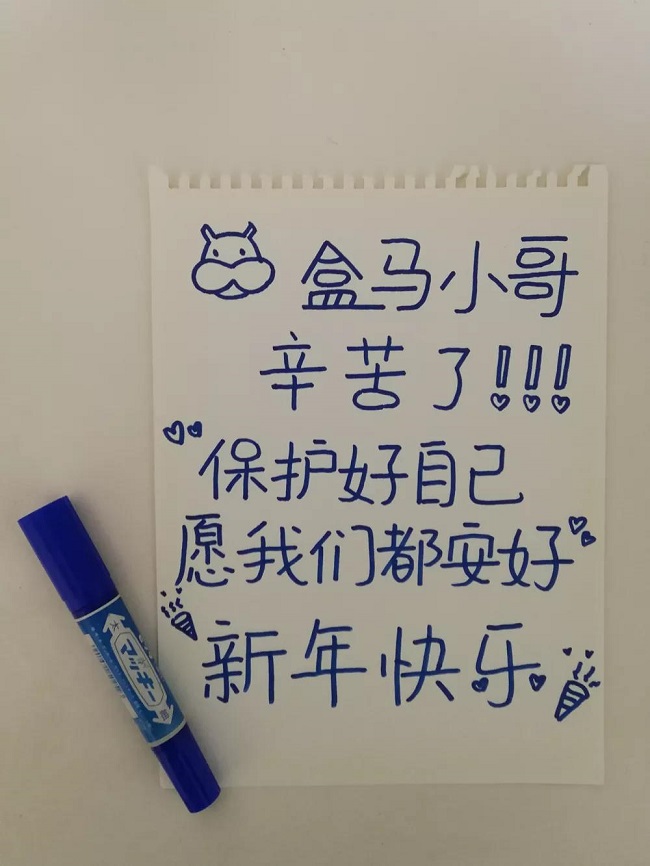 盒马小哥
辛苦了!!!
保护好自己
愿我们都安好
新年快乐
マッキー